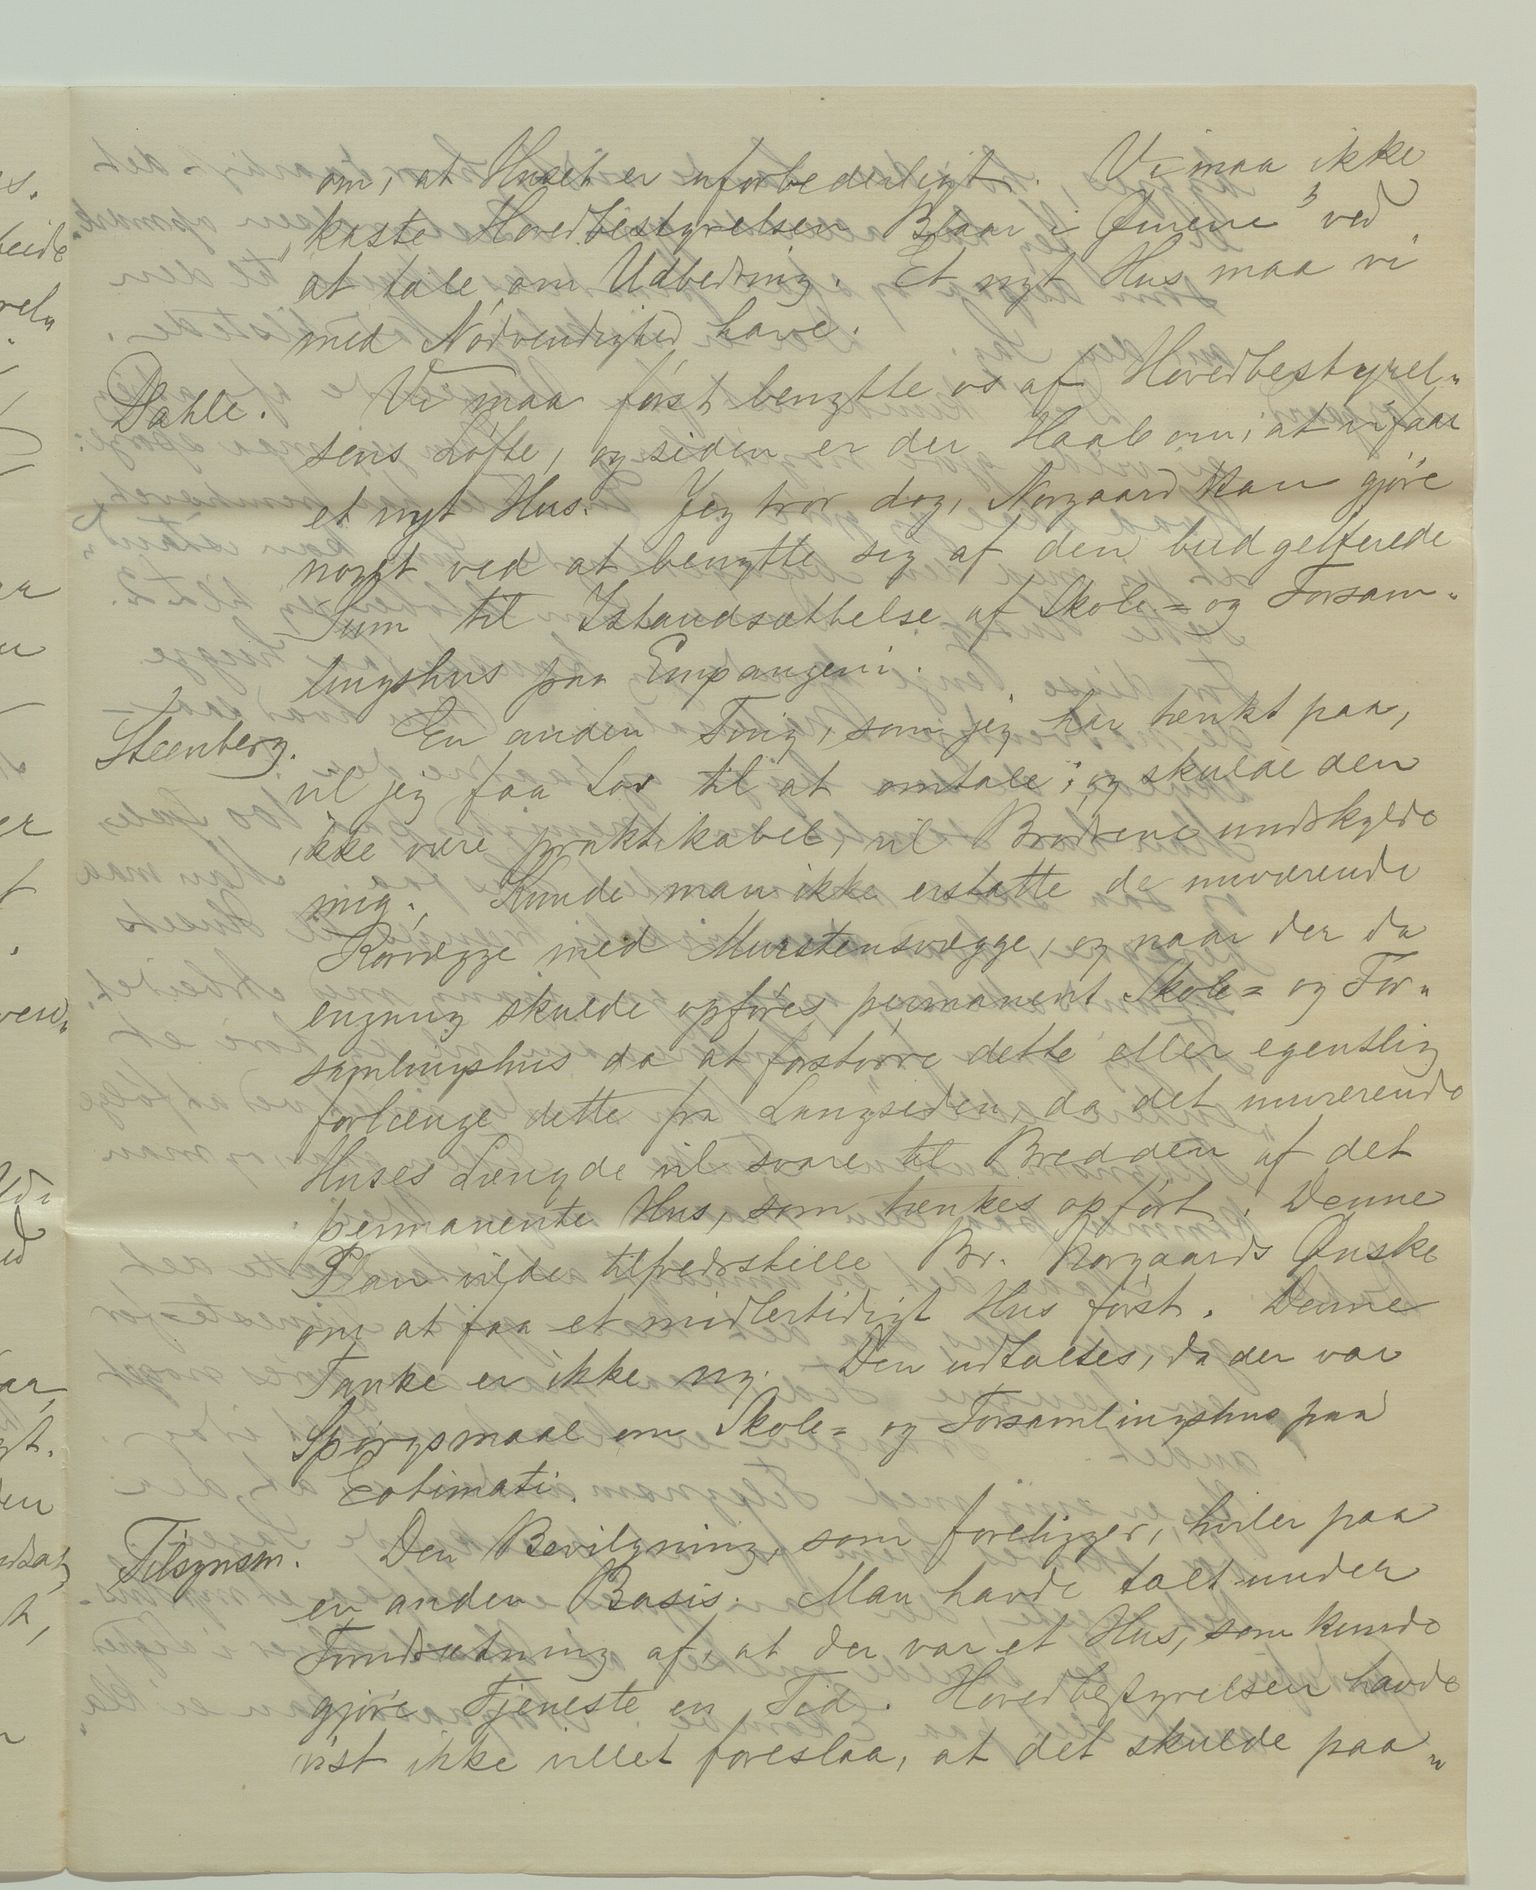 om, at Huset er uforbederligt. Vi maa ikke
"kaste Hovedbestyrelsen Blaar i Øinene" ved
at tale om Udbedring. Et nyt Hus maa vi
med Nödvendighed have.
Dahle. Vi maa först benytte os af Hovedbestyrel-
sens Löfte, og siden er der Haab om, at vi faar
et nyt Hus. Jeg tror dog, Norgaard kan gjöre
noget ved at benytte sig af den budgetterede
Sum til Istandsættelse af Skole= og Forsam-
lingshus paa Empangeni.
Steenberg. En anden Ting, som jeg har tænkt paa,
vil jeg faa Lov til at omtale; og skulde den
ikke være praktikabel, vil Brödrene undskylde
mig. Kunde man ikke erstatte de nuværende
Rörvægge med Murstensvægge, og naar der da
engang skulde opföres permanent Skole= og For-
samlingshus da at forstörre dette eller egentlig
forlænge dette fra Langsiden, da det nuværende
Huses Længde vil svare til Bredden af det
permanente Hus, som tænkes opfört. Denne
Plan vilde tilfredsstille Br. Norgaards Ønske
om at faa et midlertidigt Hus först. Denne
Tanke er ikke ny. Den udtaltes, da der var
Spörgsmaal om Skole= og Forsamlingshus paa
Eotimati.
Tilsynsm. Den Bevilgning, som foreligger, hviler paa
en anden Basis. Man havde talt under
Forudsætning af, at der var et Hus, som kunde
gjöre Tjeneste en Tid. Hovedbestyrelsen havde
vist ikke villet foreslaa, at det skulde paa-